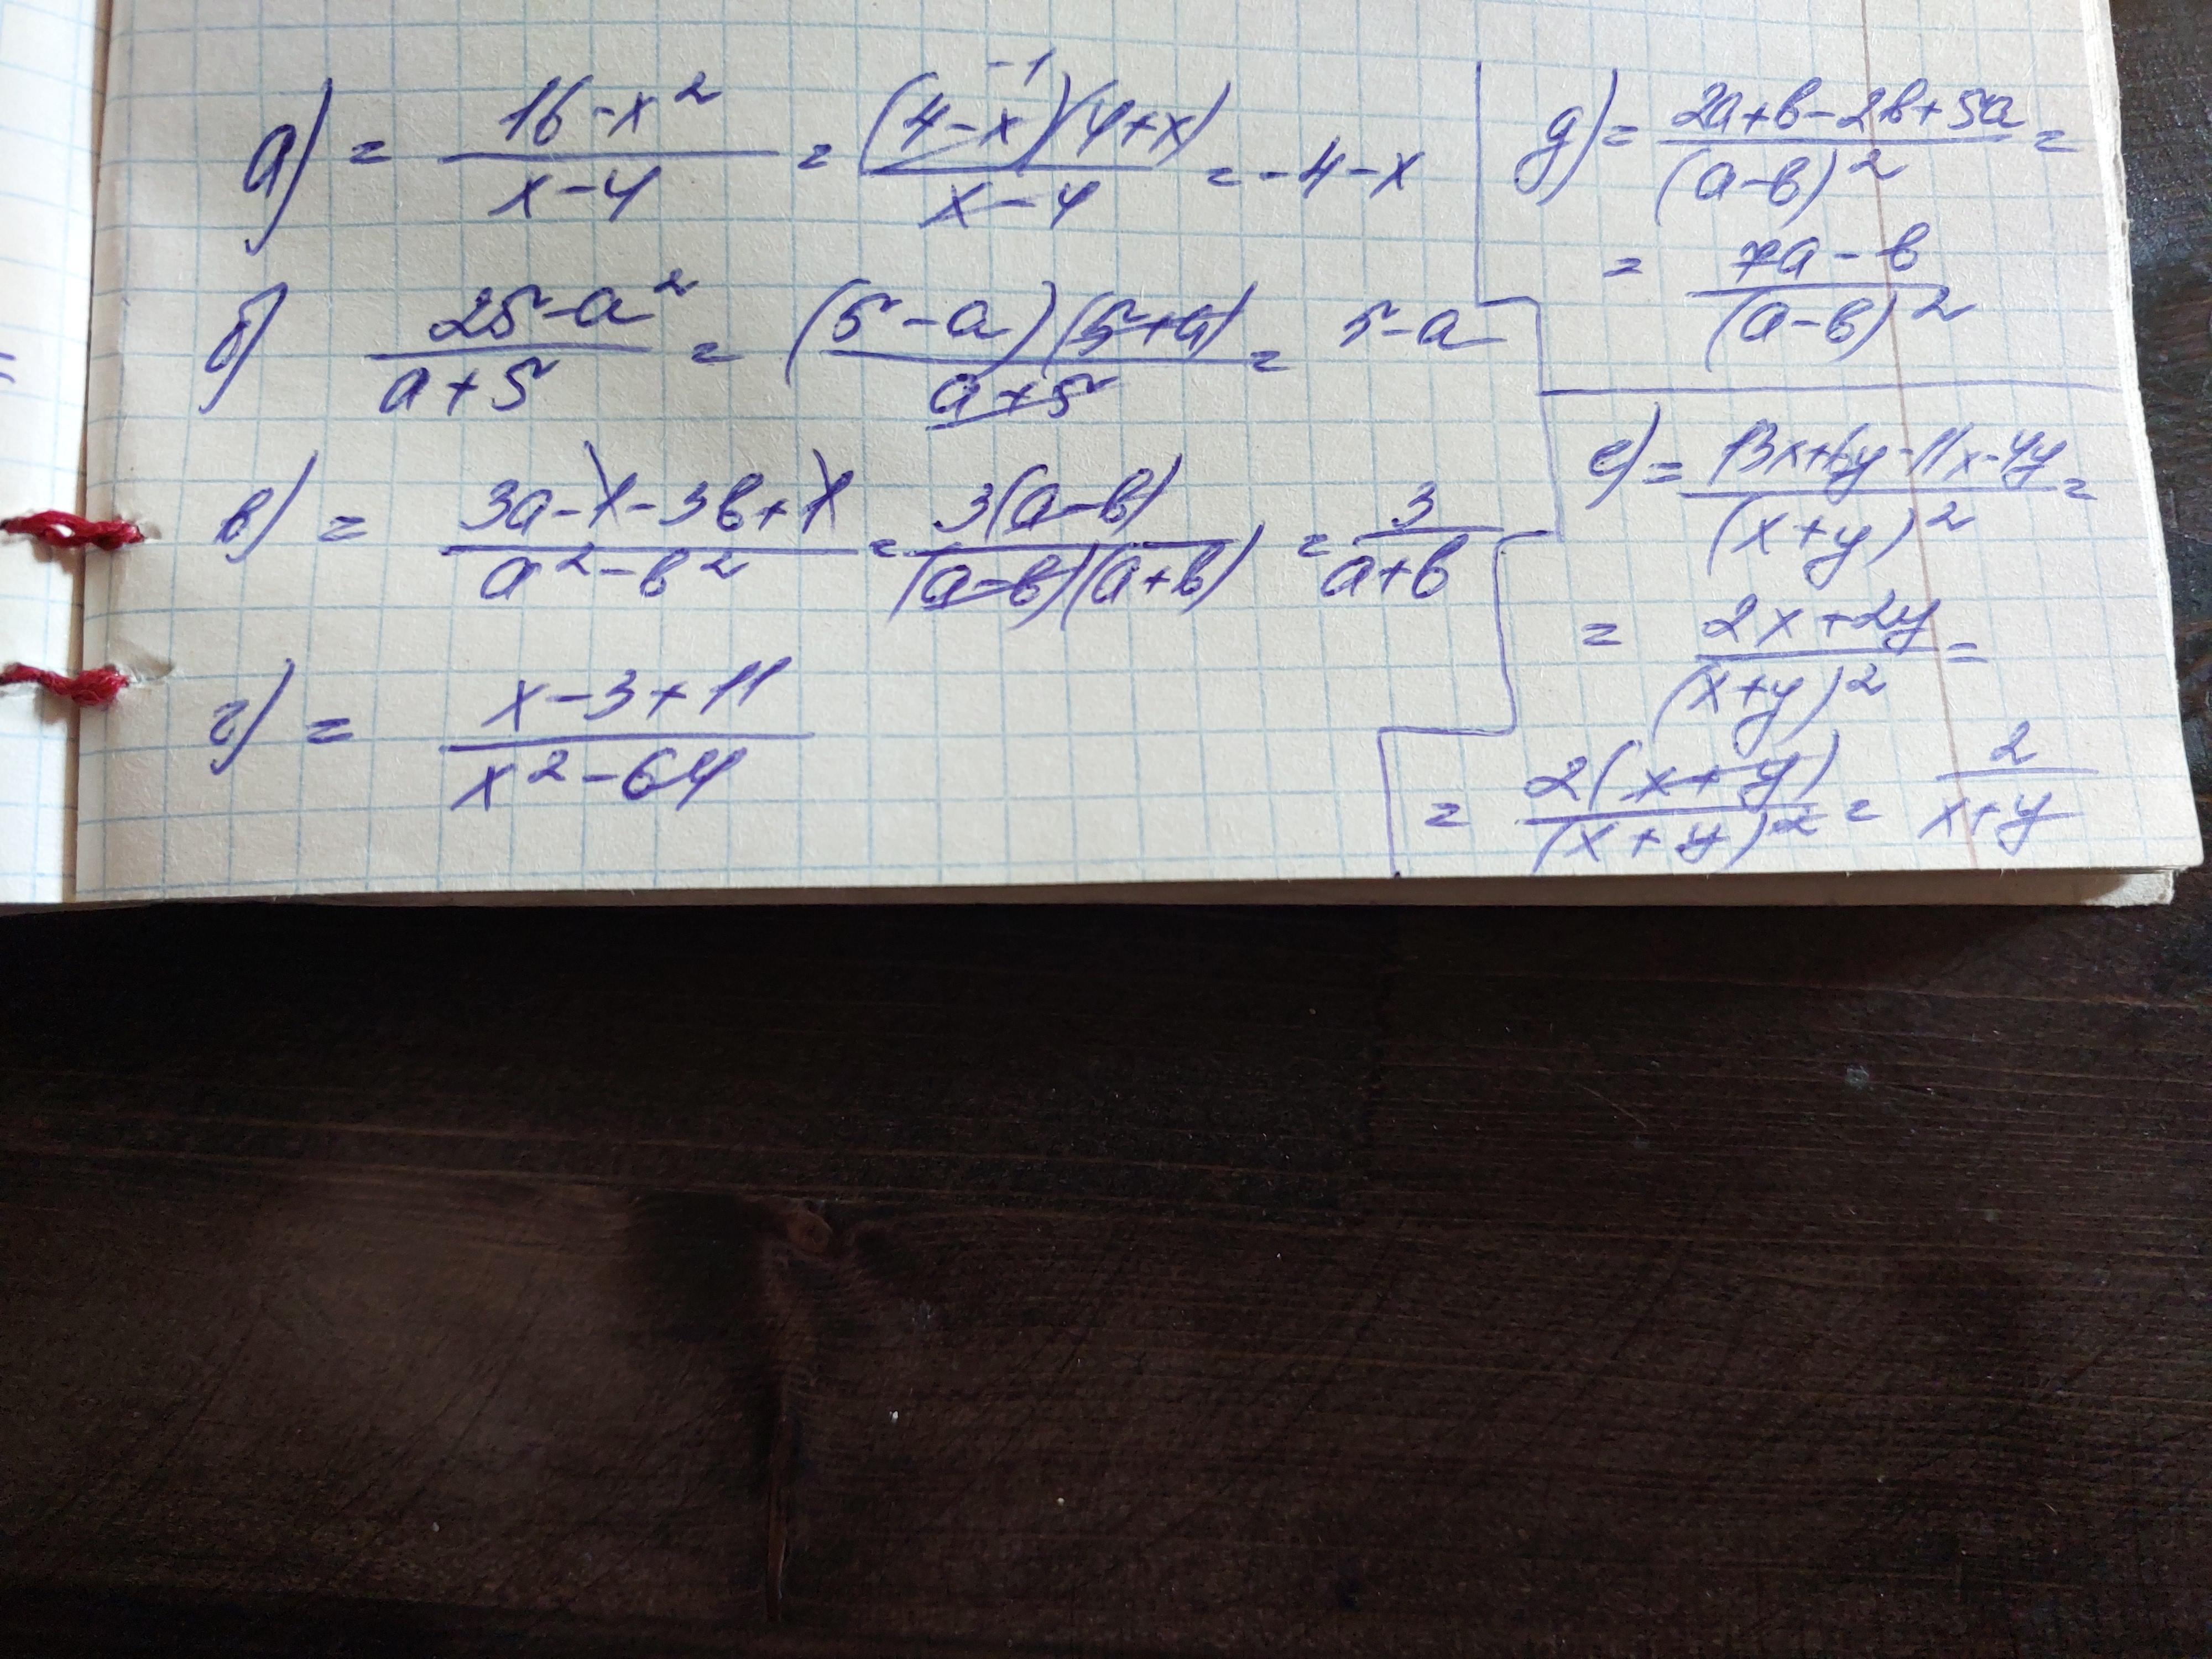 а) = (16-x²)/(x-4) = ((4-x)⁻¹(4+x))/(x-4) = -4-x
б) (25-a²)/(a+5) = ((5-a)(5+a))/(a+5) = 5-a
в) = (3a-1-3b+1)/(a²-b²) = 3(a-b)/((a-b)(a+b)) = 3/(a+b)
г) = (x-3+11)/(x²-64)
д) = (2a+b-2b+5a)/(a-b)² =
= (7a-b)/(a-b)²
е) = (13x+6y-11x-4y)/(x+y)² =
= (2x+2y)/(x+y)² =
= 2(x+y)/(x+y)² = 2/(x+y)